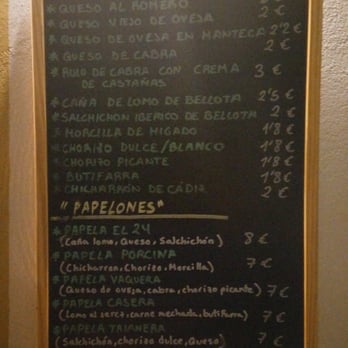 * QUESO AL ROMERO 2 €
* QUESO VIEJO DE OVEJA 2 €
* QUESO DE OVEJA EN MANTECA 2'2 €
* QUESO DE CABRA 2 €
* RULO DE CABRA CON CREMA DE CASTAÑAS 3 €
* CAÑA DE LOMO DE BELLOTA 2'5 €
* SALCHICHON IBERICO DE BELLOTA 2 €
* MORCILLA DE HIGADO 1'8 €
* CHORIZO DULCE/BLANCO 1'8 €
* CHORIZO PICANTE 1'8 €
* BUTIFARRA 1'8 €
* CHICHARRÓN DE CÁDIZ 2 €
"PAPELONES"
* PAPELA EL 24
(Caña lomo, Queso, Salchichón) 8 €
* PAPELA PORCINA
(Chicharron, Chorizo, Morcilla) 7 €
* PAPELA VAQUERA
(Queso de oveja, cabra, chorizo picante) 7 €
* PAPELA CASERA
(Lomo al jerez, carne mechada, butifarra) 7 €
* PAPELA TRIANERA
(Salchichón, chorizo dulce, Queso) 7 €